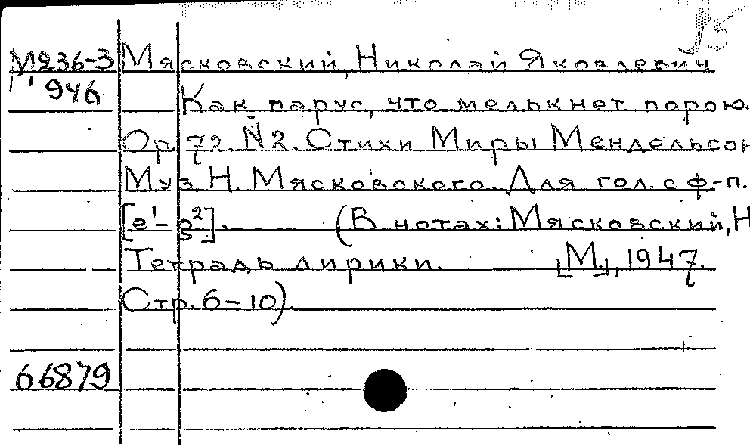 М236-3 Мясковский, Николай Яковлевич
946 Как парус, что мелькнет порою.
Ор. 72. N2. Стихи Миры Мендельсон
Муз. Н. Мясковского. Для гол. с ф-п.
[e¹-g²]. (В нотах: Мясковский, Н
Тетрадь лирики. [М.], 1947.
Стр. 6-10).
66879